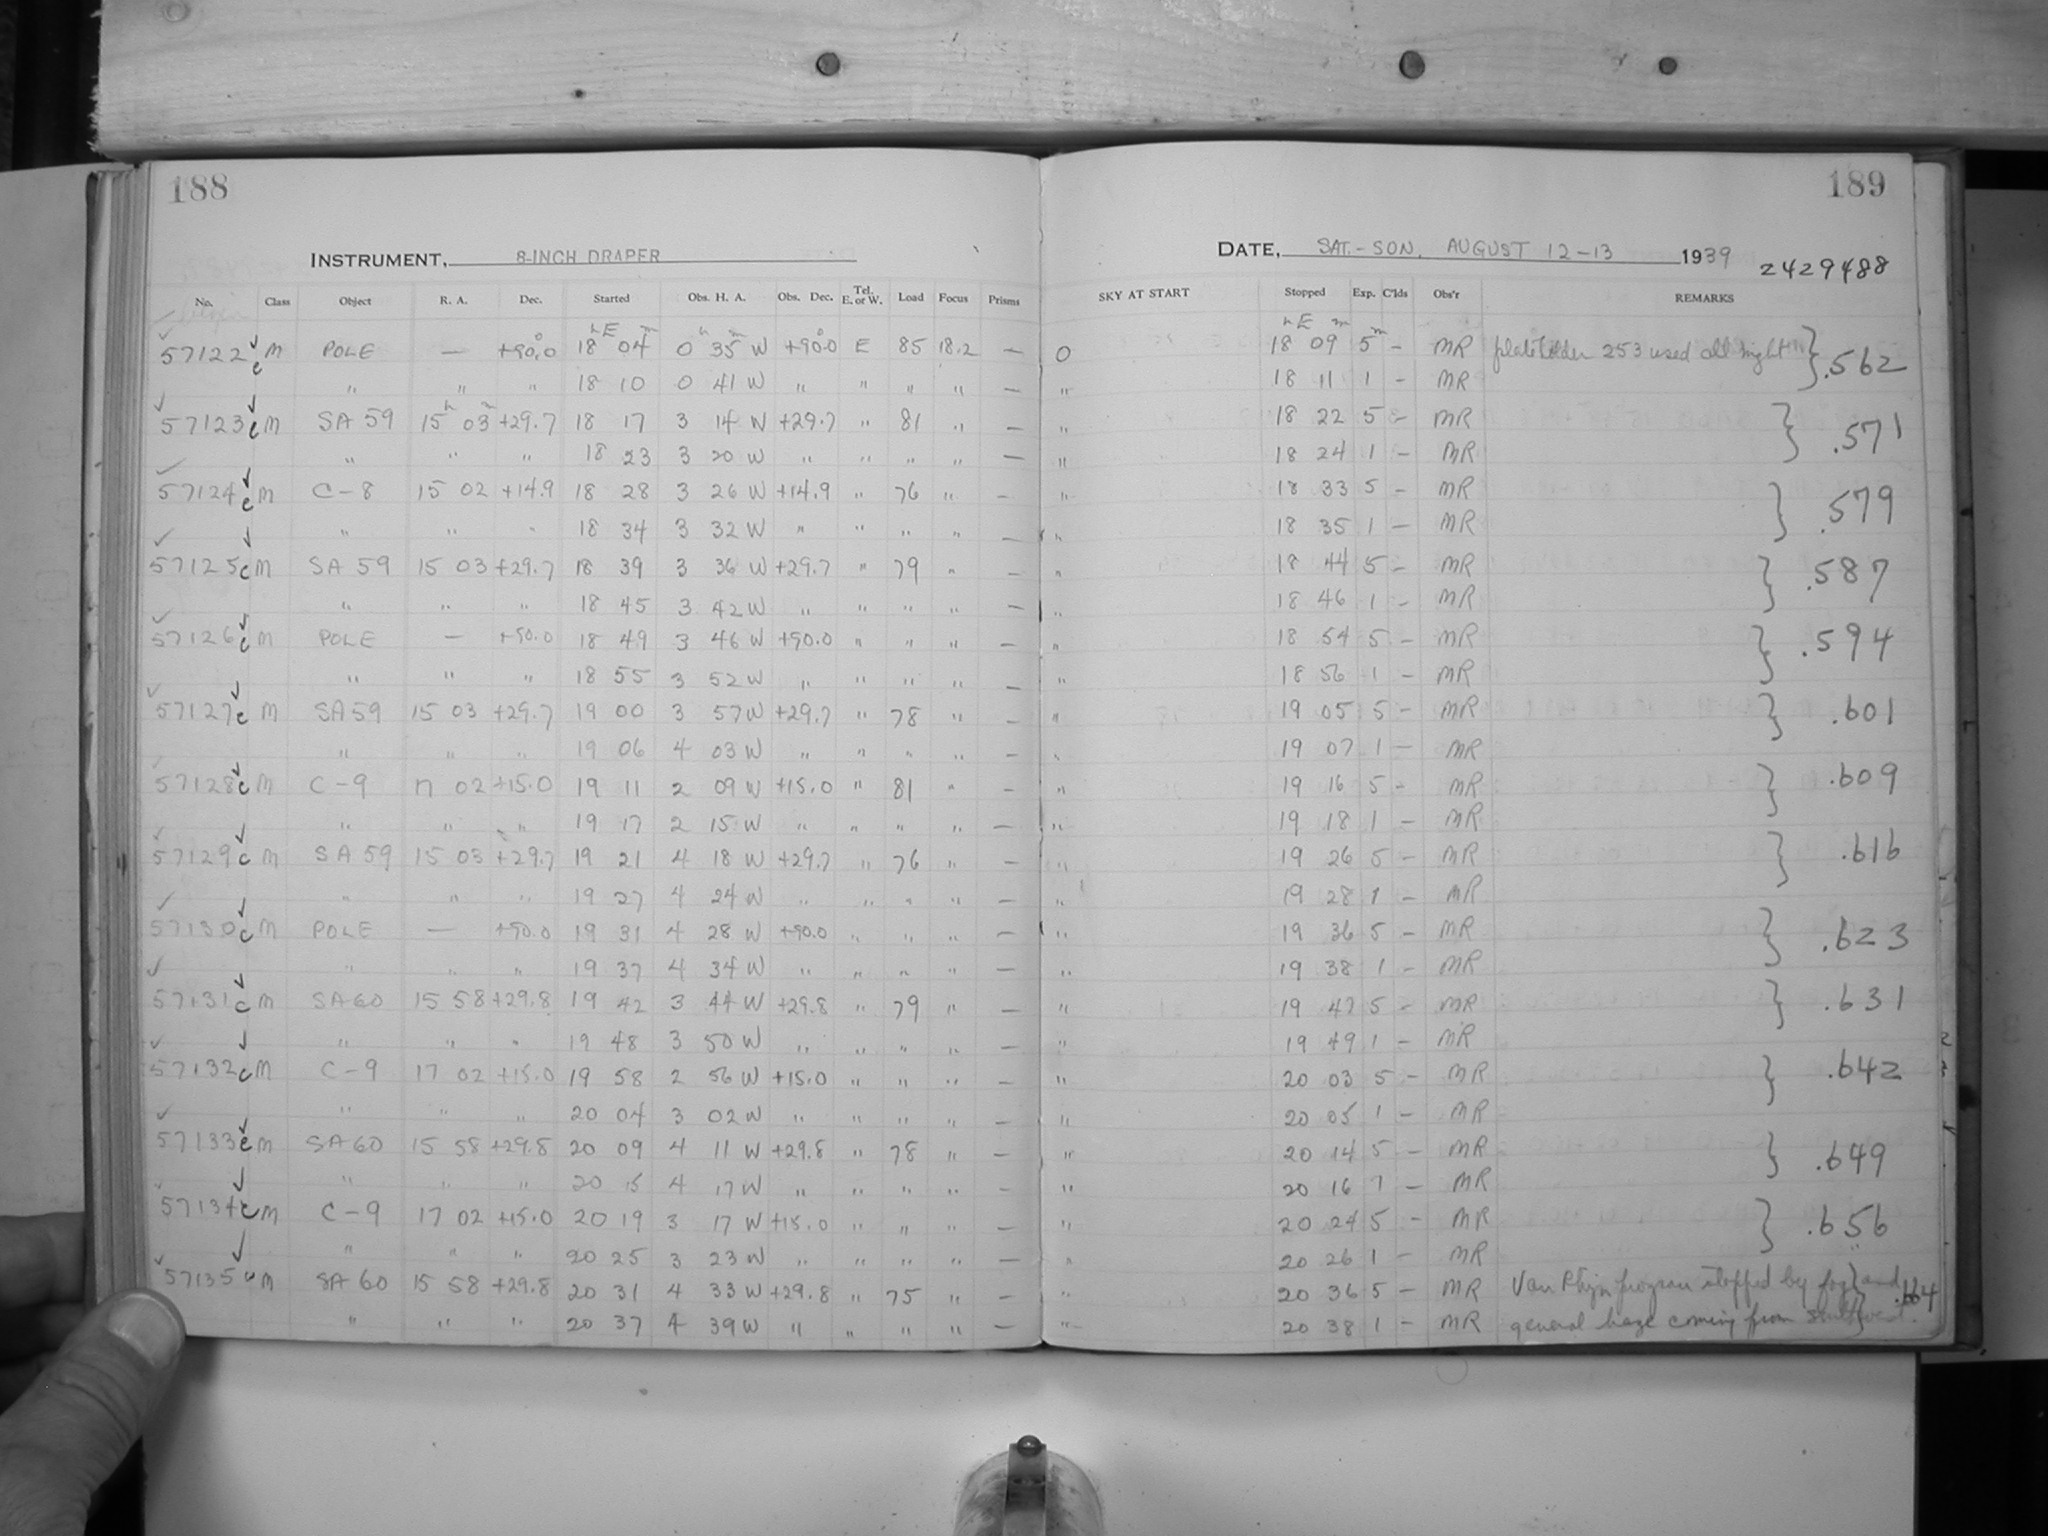 188
189
INSTRUMENT, 8-INCH DRAPER
DATE, SAT.-SUN. AUGUST 12-13 1939 2429488
No. Class Object R. A. Dec. Started Obs. H. A. Obs. Dec. Tel. E. or W. Load Focus Prisms SKY AT START Stopped Exp. C'lds Obs'r REMARKS
57122 c M POLE — +90.0 18 04 0 35 W +90.0 E 85 18.2 — 0 18 09 5 - MR plateholder 253 used all night } .562
" " " 18 10 0 41 W " " " " — " 18 11 1 - MR
57123 c M SA 59 15 03 +29.7 18 17 3 14 W +29.7 " 81 " — " 18 22 5 - MR } .571
" " " 18 23 3 20 W " " " " — " 18 24 1 - MR
57124 c M C-8 15 02 +14.9 18 28 3 26 W +14.9 " 76 " — " 18 33 5 - MR } .579
" " " 18 34 3 32 W " " " " — " 18 35 1 - MR
57125 c M SA 59 15 03 +29.7 18 39 3 36 W +29.7 " 79 " — " 18 44 5 - MR } .587
" " " 18 45 3 42 W " " " " — " 18 46 1 - MR
57126 c M POLE — +90.0 18 49 3 46 W +90.0 " " " — " 18 54 5 - MR } .594
" " " 18 55 3 52 W " " " " — " 18 56 1 - MR
57127 c M SA 59 15 03 +29.7 19 00 3 57 W +29.7 " 78 " — " 19 05 5 - MR } .601
" " " 19 06 4 03 W " " " " — " 19 07 1 - MR
57128 c M C-9 17 02 +15.0 19 11 2 09 W +15.0 " 81 " — " 19 16 5 - MR } .609
" " " 19 17 2 15 W " " " " — " 19 18 1 - MR
57129 c M SA 59 15 03 +29.7 19 21 4 18 W +29.7 " 76 " — " 19 26 5 - MR } .616
" " " 19 27 4 24 W " " " " — " 19 28 1 - MR
57130 c M POLE — +90.0 19 31 4 28 W +90.0 " " " — " 19 36 5 - MR } .623
" " " 19 37 4 34 W " " " " — " 19 38 1 - MR
57131 c M SA 60 15 58 +29.8 19 42 3 44 W +29.8 " 79 " — " 19 47 5 - MR } .631
" " " 19 48 3 50 W " " " " — " 19 49 1 - MR
57132 c M C-9 17 02 +15.0 19 58 2 56 W +15.0 " " " — " 20 03 5 - MR } .642
" " " 20 04 3 02 W " " " " — " 20 05 1 - MR
57133 c M SA 60 15 58 +29.8 20 09 4 11 W +29.8 " 78 " — " 20 14 5 - MR } .649
" " " 20 15 4 17 W " " " " — " 20 16 1 - MR
57134 c M C-9 17 02 +15.0 20 19 3 17 W +15.0 " " " — " 20 24 5 - MR } .656
" " " 20 25 3 23 W " " " " — " 20 26 1 - MR
57135 c M SA 60 15 58 +29.8 20 31 4 33 W +29.8 " 75 " — " 20 36 5 - MR Van Rhijn program stopped by fog and } .664
" " " 20 37 4 39 W " " " " — " 20 38 1 - MR general haze coming from Southwest.